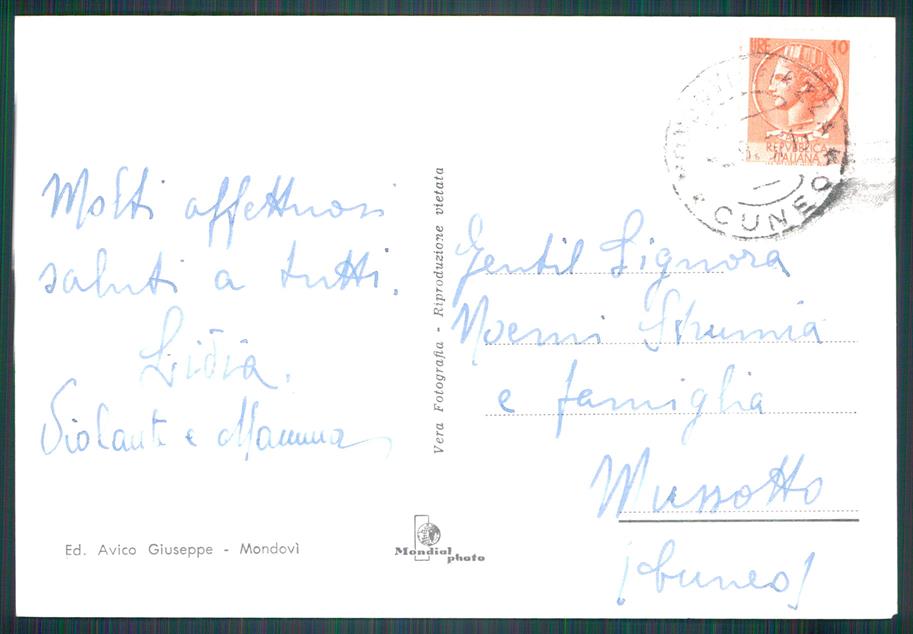 Molti affettuosi
saluti a tutti.
Lidia.
Violante e Mamma
Ed. Avico Giuseppe - Mondovì
Vera Fotografia - Riproduzione vietata
Mondial
photo
LIRE 10
REPVBBLICA
ITALIANA
CUNEO
Gentil Signora
Noemi Strumia
e famiglia
Mussotto
(Cuneo)